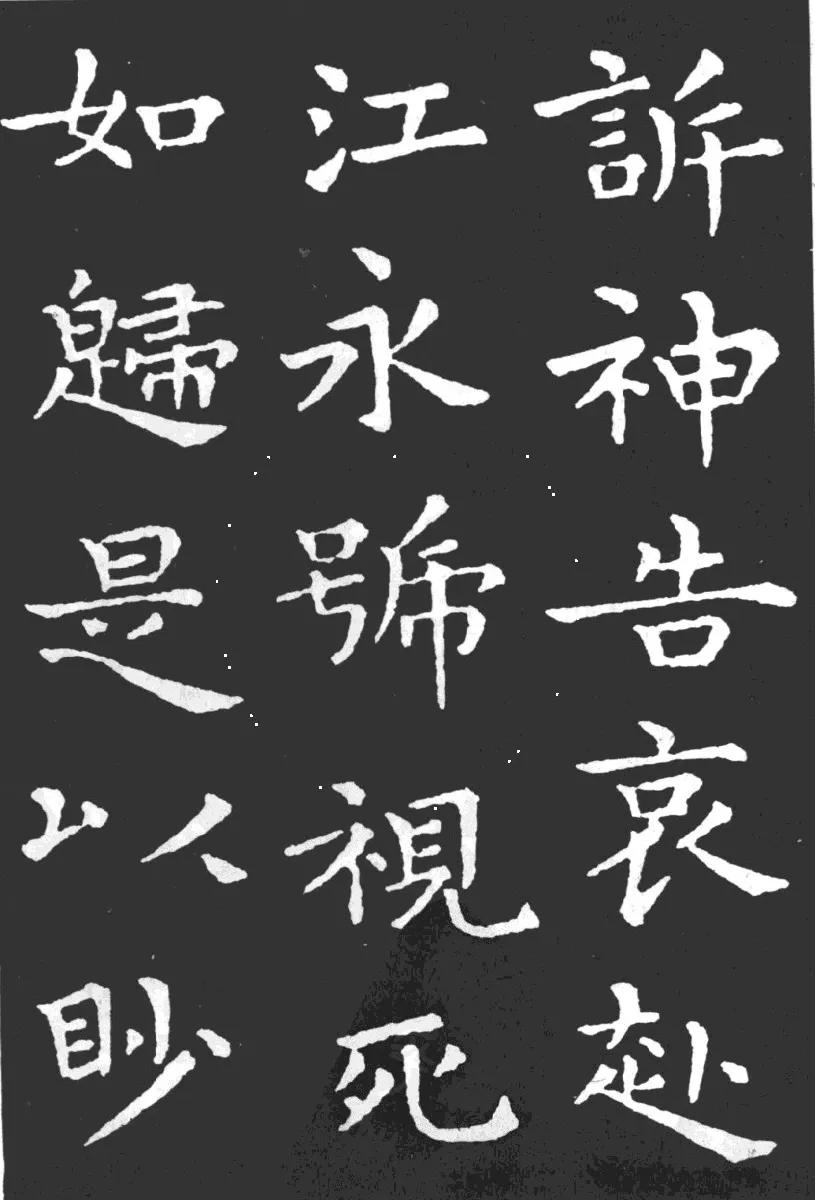 訴神告哀赴
江永號視死
如歸是以眇